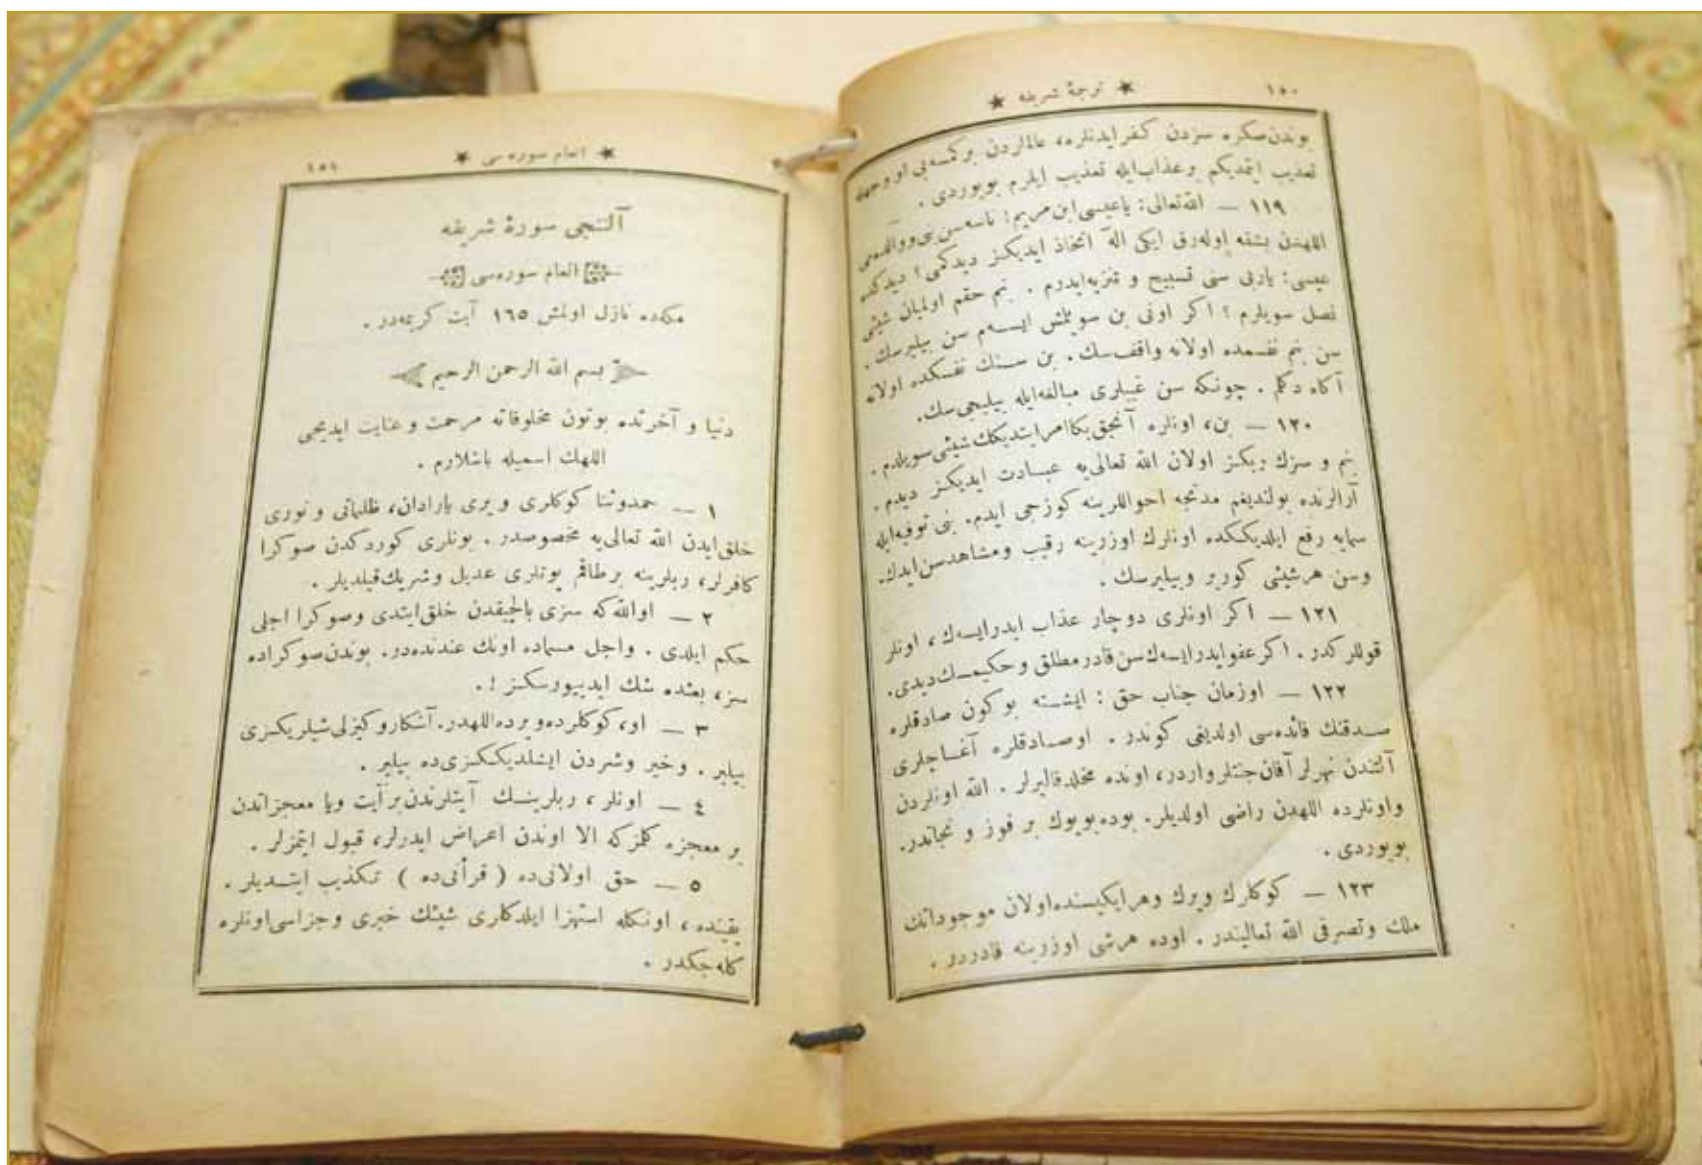 ١٥٠ ★ ترجمهٔ شریفه ★
بوندن‌صكره سزدن كفر ایدنلره، عالملردن بركمسه‌یی او وجهله
تعذیب ایتمدیكم برعذاب‌ایله تعذیب ایلرم بویوردی .
١١٩ — الله‌تعالی: یاعیسی‌ابن‌مریم! ناسه‌سن‌بنی‌ووالده‌می
اللهدن بشقه اوله‌رق ایكی الٓه اتخاذ ایدیكز دیدكمی؟ دیدكده
عیسی: یاربی سنی تسبیح و تنزیه‌ایدرم . بنم حقم اولمیان شیئی
نصل سویلرم؟ اكر اونی بن سویلمش ایسه‌م سن بیلیرسك .
سن بنم نفسمده اولانه واقف‌سك . بن سنك نفسكده اولانه
آكاه دكلم . چونكه سن غیبلری مبالغه‌ایله بیلیجی‌سك.
١٢٠ — بن، اونلره آنجق‌بكاامرایتدیكك‌شیئی‌سویلدم .
بنم و سزك ربكز اولان الله تعالی‌یه عبادت ایدیكز دیدم .
آرالرنده بولندیغم مدتجه احواللرینه كوزجی ایدم. بنی توفیه‌ایله
سمایه رفع ایلدیككده اونلرك اوزرینه رقیب ومشاهدسن‌ایدك.
وسن هرشیئی كوریر وبیلیرسك .
١٢١ — اكر اونلری دوچار عذاب ایدرایسه‌ك، اونلر
قوللركدر . اكرعفوایدرایسه‌ك‌سن‌قادرمطلق وحكیمسك‌دیدی.
١٢٢ — اوزمان جناب حق : ایشته بوكون صادقلره
صدقنك فائده‌سی اولدیغی كوندر . اوصادقلره آغاجلری
آلتندن نهرلر آقان‌جنتلرواردر، اونده مخلدقالیرلر . الله اونلردن
واونلرده اللهدن راضی اولدیلر. بوده‌بویوك بر فوز و نجاتدر.
بویوردی .
١٢٣ — كوكلرك ویرك وهرایكیسنده‌اولان موجوداتك
ملك وتصرفی الله تعالینكدر . اوده هرشی اوزرینه قادردر .
★ انعام سوره‌سی ★ ١٥١
آلتنجی سورهٔ شریفه
انعام سوره‌سی
مكده نازل اولمش ١٦٥ آیت كریمه‌در .
بسم الله الرحمن الرحیم
دنیا و آخرتده بوتون مخلوقاته مرحمت وعنایت ایدیجی
اللهك اسمیله باشلارم .
١ — حمدوثنا كوكلری ویری یارادان، ظلماتی ونوری
خلق‌ایدن الله تعالی‌یه مخصوصدر . بونلری كوردكدن صوكرا
كافرلر، ربلرینه برطاقم بوتلری عدیل وشریك‌قیلدیلر .
٢ — اوالله‌كه سزی بالچیقدن خلق‌ایتدی وصوكرا اجلی
حكم ایلدی . واجل مسماده اونك عندنده‌در. بوندن‌صوكراده
سز، بعثده شك ایدییورسكز !.
٣ — او، كوكلرده‌ویرده‌اللهدر. آشكاروكیزلی‌شیلریكزی
بیلیر . وخیر وشردن ایشلدیككزی‌ده بیلیر .
٤ — اونلر، ربلرینك آیتلرندن‌برآیت ویا معجزاتدن
بر معجزه كلمزكه الا اوندن اعراض ایدرلر، قبول ایتمزلر .
٥ — حق اولانی‌ده ( قرآنی‌ده ) تكذیب ایتدیلر .
یقینده، اونكله استهزا ایلدكلری شیئك خبری وجزاسی‌اونلره
كله‌جكدر .